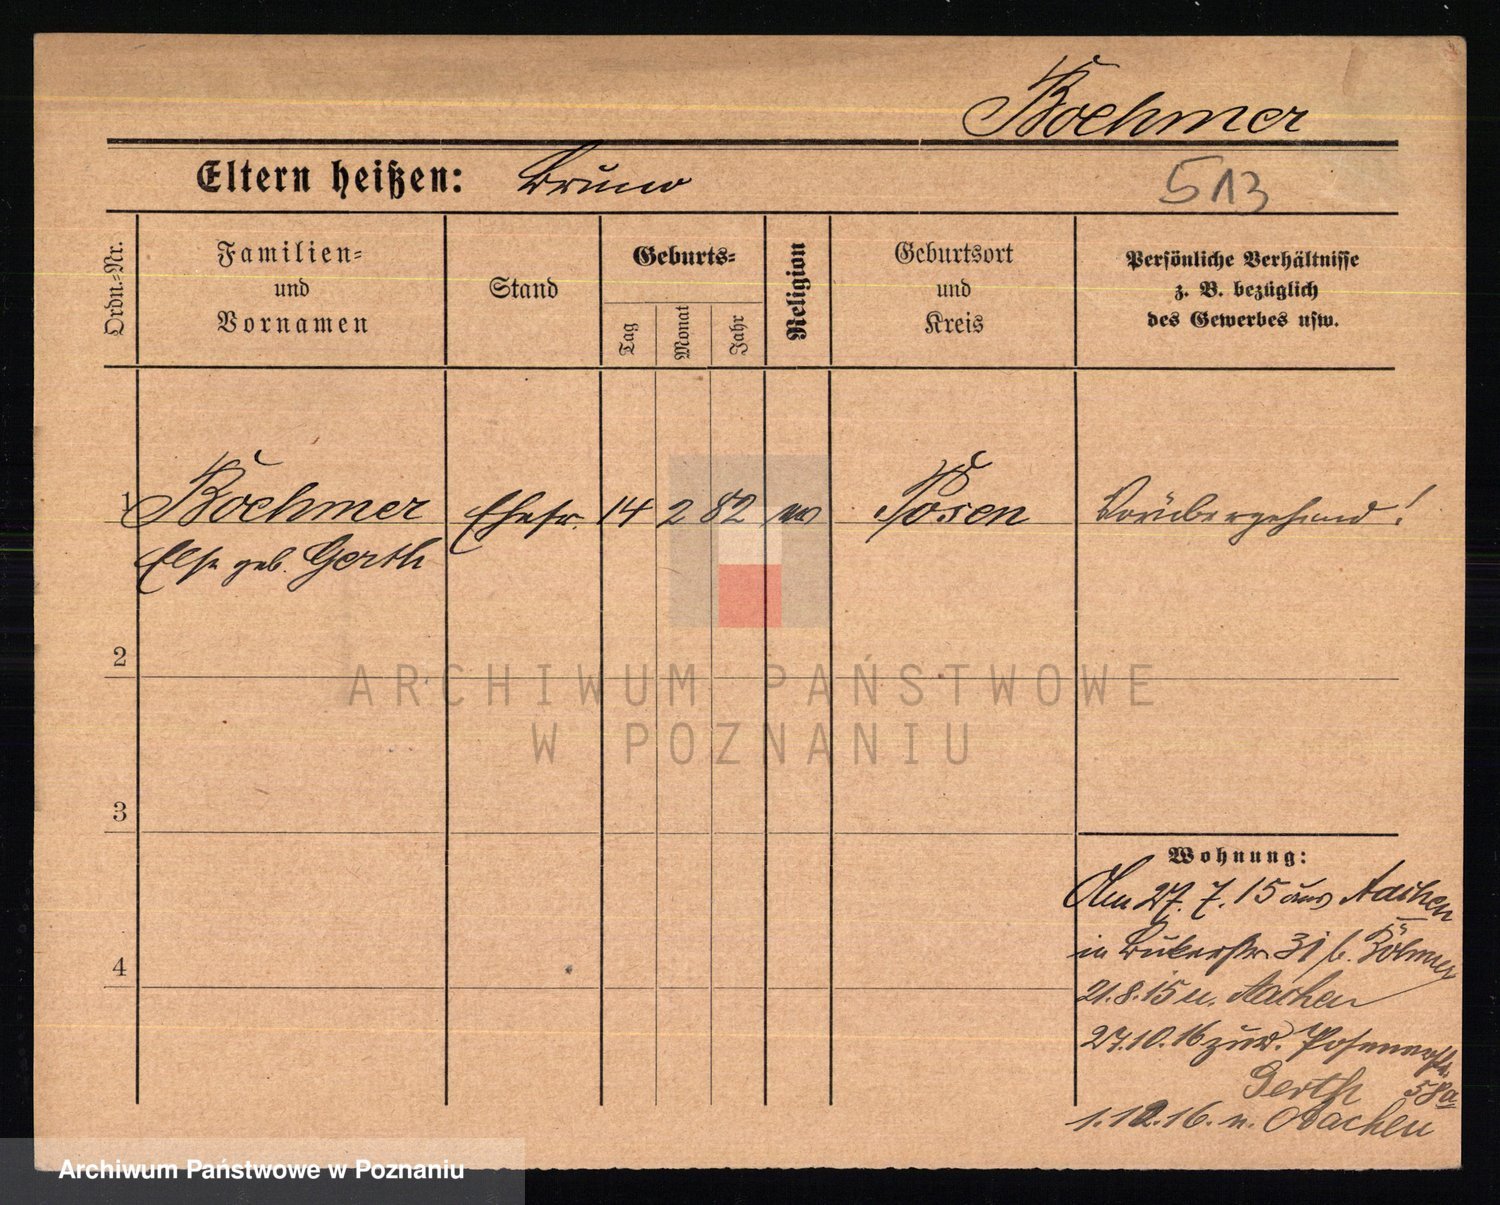 Boehmer
Eltern heißen: Bruno
513
Ordn.-Nr.
Familien-
und
Vornamen
Stand
Geburts-
Tag
Monat
Jahr
Religion
Geburtsort
und
Kreis
Persönliche Verhältnisse
z. B. bezüglich
des Gewerbes usw.
1 Boehmer Ehefr. 14 2 82 Posen Vorübergehend!
Else geb. Gerth
2
ARCHIWUM PAŃSTWOWE
W POZNANIU
3
Wohnung:
Am 27. 7. 15 aus Aachen
in 31 b. Böhmer
4
21.8.15 n. Aachen
27.10.16 zur.
Gerth 58a
1.12.16. n. Aachen
Archiwum Państwowe w Poznaniu